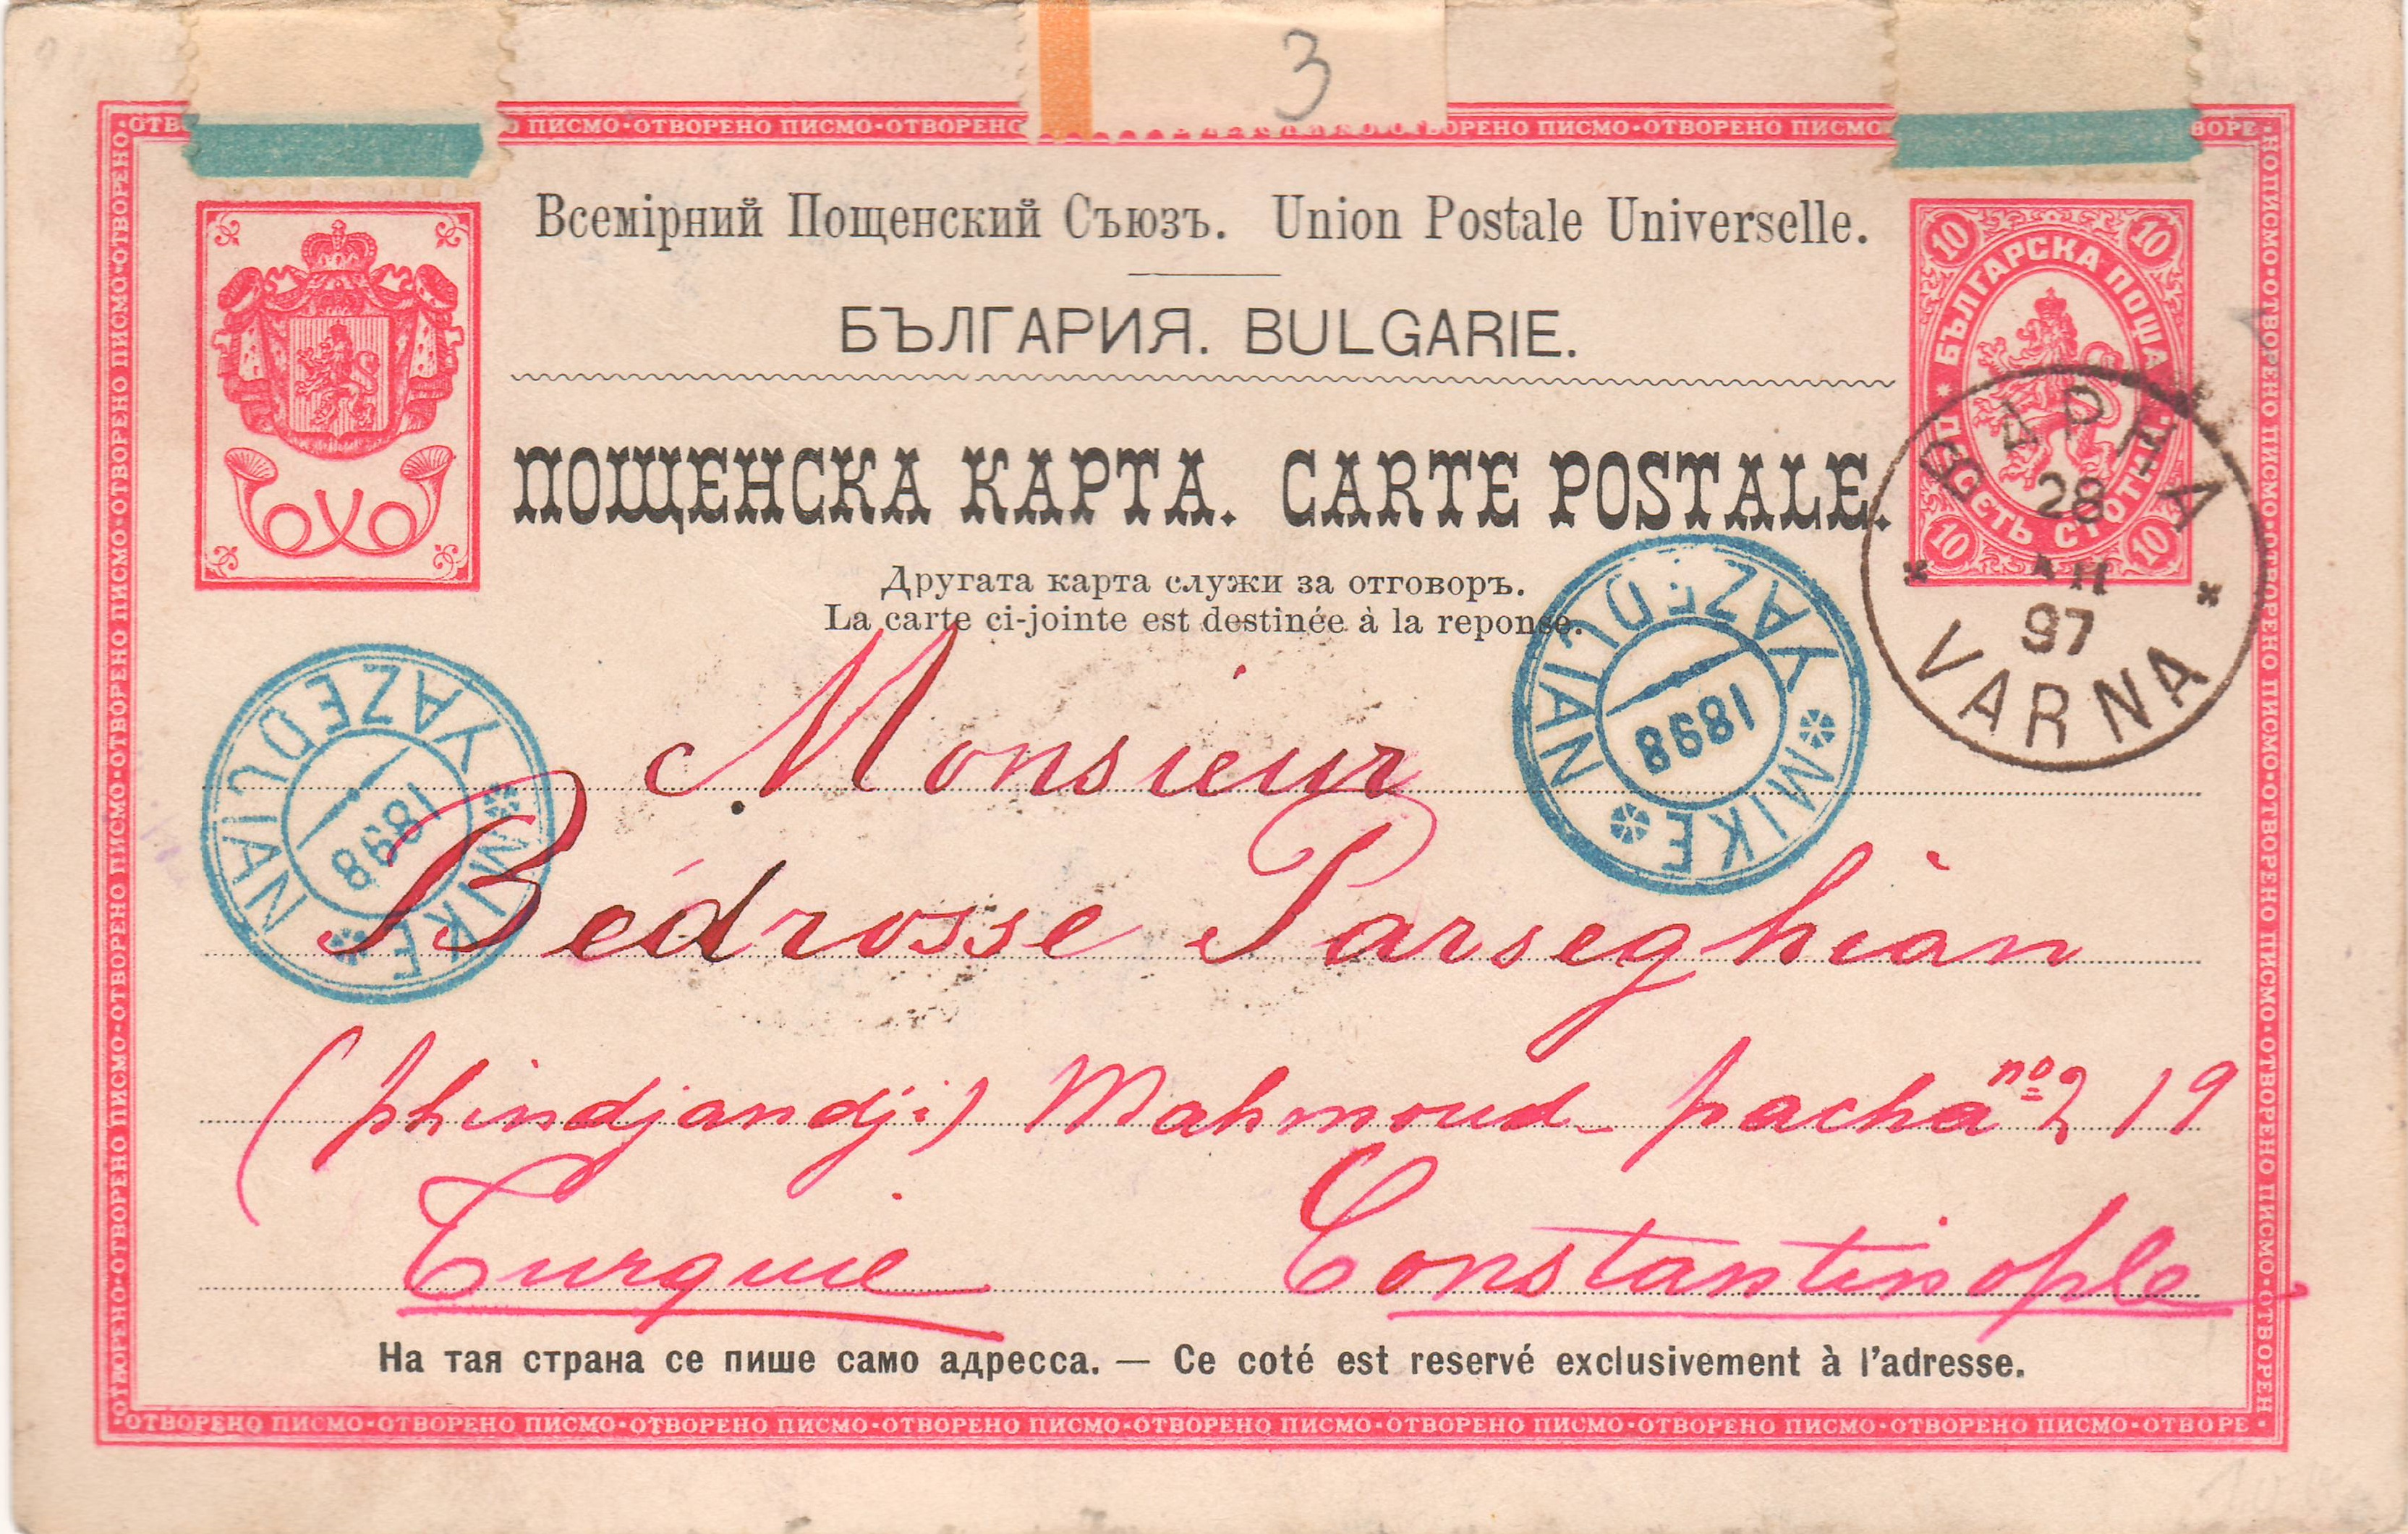 3
·ОТВОРЕНО ПИСМО·ОТВОРЕНО ПИСМО·ОТВОРЕНО
Всемірний Пощенский Съюзъ. Union Postale Universelle.
БЪЛГАРИЯ. BULGARIE.
10 10
БЪЛГАРСКА ПОЩА
ДЕСЕТЬ СТОТИ.
10 10
ПОЩЕНСКА КАРТА. CARTE POSTALE.
ВАРНА
28
XII
97
VARNA
Другата карта служи за отговоръ.
La carte ci-jointe est destinée à la reponse.
MIKE YAZEDJIAN
1898
MIKE YAZEDJIAN
1898
Monsieur
Bédrosse Parseghian
(phindjandji) Mahmoud-pacha no 219
Turquie Constantinople
На тая страна се пише само адресса. — Ce coté est reservé exclusivement à l'adresse.
·ОТВОРЕНО ПИСМО·ОТВОРЕНО ПИСМО·ОТВОРЕНО ПИСМО·ОТВОРЕНО ПИСМО·ОТВОРЕНО ПИСМО·ОТВОРЕНО ПИСМО·ОТВОРЕНО ПИСМО·ОТВОРЕНО ПИСМО·ОТВОРЕ·